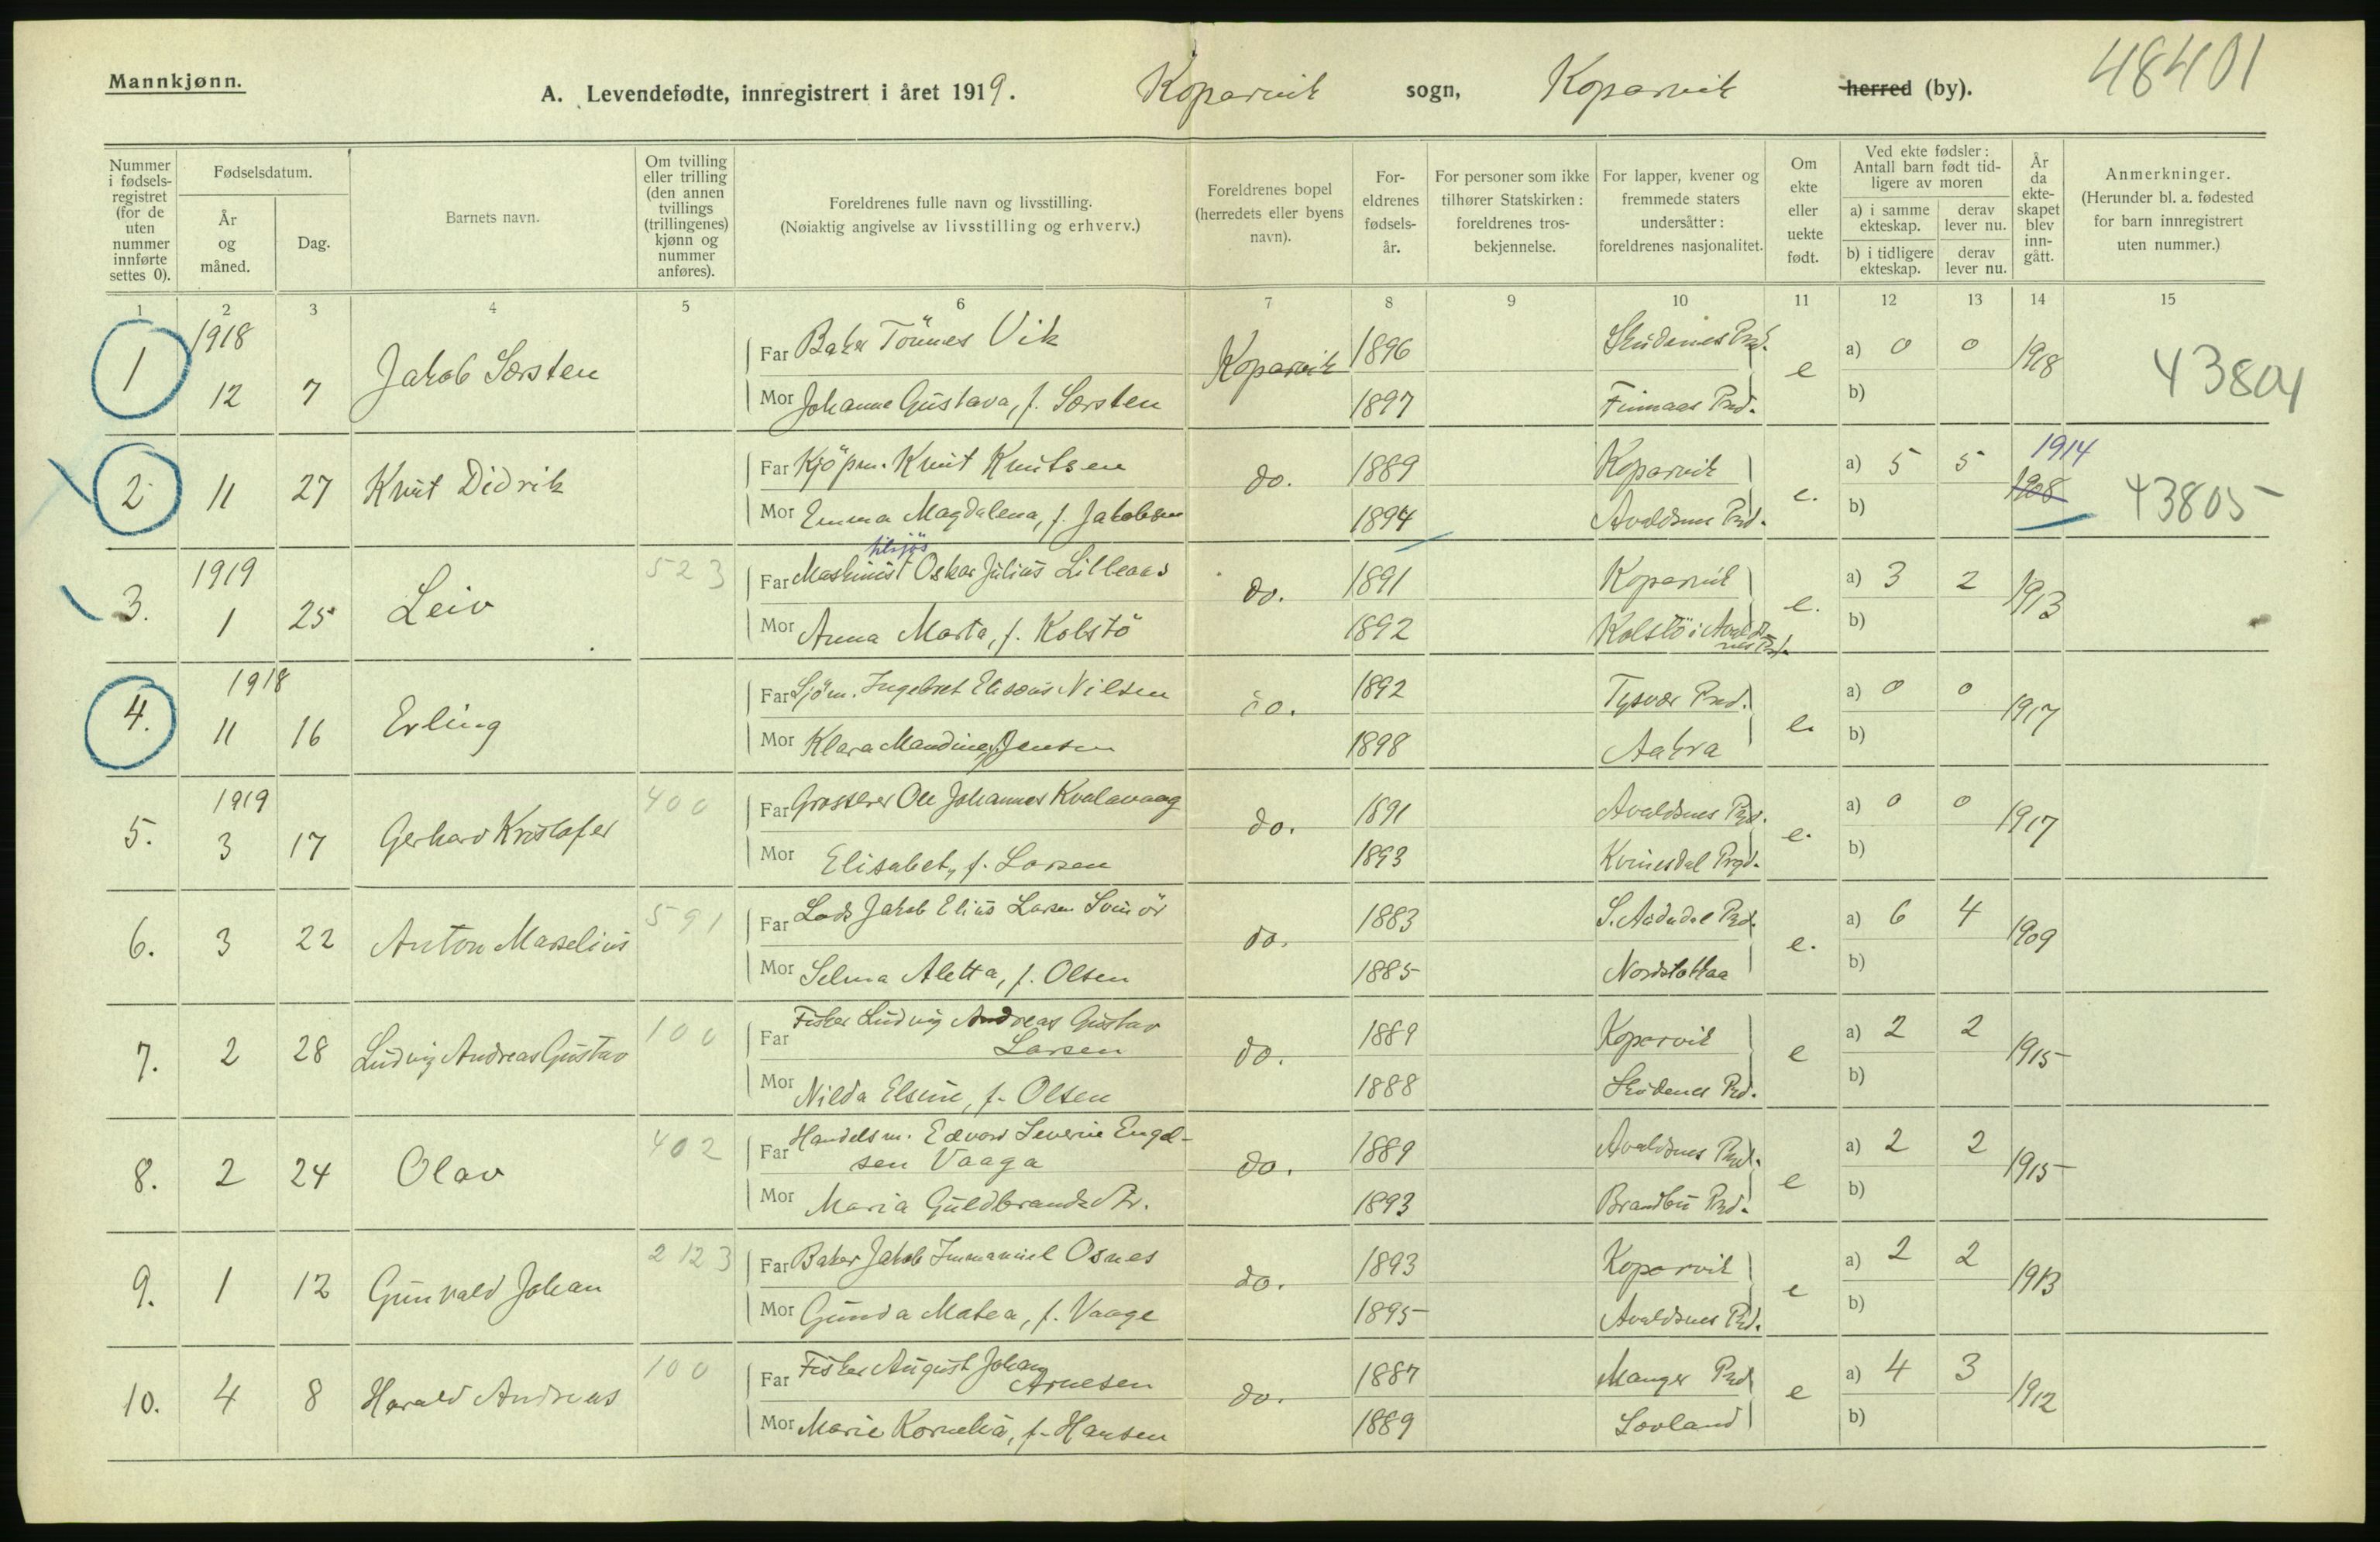 Mannkjønn.
A. Levendefødte, innregistrert i året 1919. Kopervik sogn, Kopervik herred (by).
48401
Nummer i fødsels-registret (for de uten nummer innførte settes 0).
Fødselsdatum.
År og måned.
Dag.
Barnets navn.
Om tvilling eller trilling (den annen tvillings (trillingenes) kjønn og nummer anføres).
Foreldrenes fulle navn og livsstilling.
(Nøiaktig angivelse av livsstilling og erhverv.)
Foreldrenes bopel (herredets eller byens navn).
For-eldrenes fødsels-år.
For personer som ikke tilhører Statskirken: foreldrenes tros-bekjennelse.
For lapper, kvener og fremmede staters undersåtter: foreldrenes nasjonalitet.
Om ekte eller uekte født.
Ved ekte fødsler: Antall barn født tid-ligere av moren
a) i samme ekteskap.
derav lever nu.
b) i tidligere ekteskap.
derav lever nu.
År da ekte-skapet blev inn-gått.
Anmerkninger.
(Herunder bl. a. fødested for barn innregistrert uten nummer.)
1 2 3 4 5 6 7 8 9 10 11 12 13 14 15
1918
1 12 7 Jakob Sørsten
Far Baker Tönnes Vik Kopervik 1896 Skudenes Prd. e a) 0 0 1918 43804
Mor Johanne Gustava, f. Sørsten 1897 Finnaas Prd. b)
2 11 27 Knut Didrik
Far Kjöpm. Knut Knutsen do. 1889 Kopervik e. a) 5 5 1914 1908 43805
Mor Emma Magdalena, f. Jakobsen 1894 Avaldsnes Prd. b)
1919
3. 1 25 Leiv 523
Far Maskinist tilsjös Oskar Julius Lilleaas do. 1891 Kopervik e. a) 3 2 1913
Mor Anna Marta, f. Kolstö 1892 Kolstö i Avaldsnes Prd. b)
1918
4. 11 16 Erling
Far Sjöm. Ingebret Eliseus Nilsen do. 1892 Tysvær Prd. e. a) 0 0 1917
Mor Klara Mandine, f. Jensen 1898 Aakra b)
1919
5. 3 17 Gerhard Kristofer 400
Far Grosserer Ole Johannes Kvalavaag do. 1891 Avaldsnes Prd. e. a) 0 0 1917
Mor Elisabet, f. Larsen 1893 Kvinesdal Prgd. b)
6. 3 22 Anton Marselius 591
Far Lods Jakob Elias Larsen Svinör do. 1883 S. Audndal Prd. e. a) 6 4 1909
Mor Selma Aletta, f. Olsen 1885 b)
7. 2 28 Ludvig Andreas Gustav 100
Far Fisker Ludvig Andreas Gustav Larsen do. 1889 Kopervik e a) 2 2 1915
Mor Nilda Elsine, f. Olsen 1888 Skudenes Prd. b)
8. 2 24 Olav 402
Far Handelsm. Edvard Severin Engel-
sen Vaaga do. 1889 Avaldsnes Prd. e a) 2 2 1915
Mor Maria Guldbrandsdtr. 1893 Brandbu Prd. b)
9. 1 12 Gunvald Johan 2123
Far Baker Jakob Immanuel Osnes do. 1893 Kopervik e a) 2 2 1913
Mor Gunda Matea, f. Vaage 1895 Avaldsnes Prd. b)
10. 4 8 Harald Andreas 100
Far Fisker August Johan Arnesen do. 1887 Manger Prd e a) 4 3 1912
Mor Marie Kornelia, f. Hansen 1889 b)